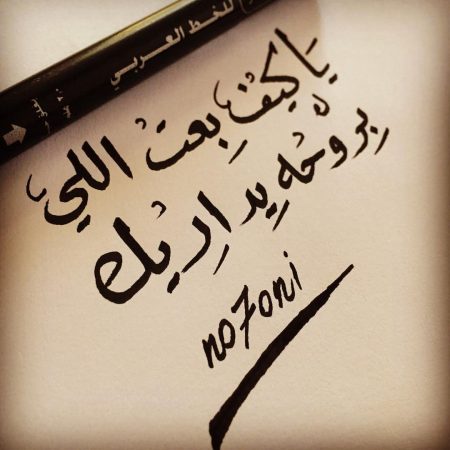 للخط العربي
يَا كيْف بِعتْ اللي
بِروْحْه يِدارِيْك
no7oni